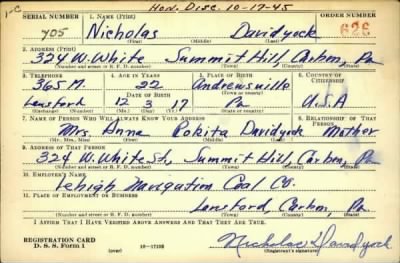 1-C Hon. Disc. 10-17-45
SERIAL NUMBER 1. NAME (Print) ORDER NUMBER
705 Nicholas Davidyock 626
(First) (Middle) (Last)
2. ADDRESS (Print)
324 W. White Summit Hill, Carbon, Pa
(Number and street or R. F. D. number) (Town) (County) (State)
3. TELEPHONE 4. AGE IN YEARS 5. PLACE OF BIRTH 6. COUNTRY OF CITIZENSHIP
365 M. 22 Andrewsville
DATE OF BIRTH
Lansford 12 3 17 Pa U.S.A
(Exchange) (Number) (Mo.) (Day) (Yr.) (State or country)
7. NAME OF PERSON WHO WILL ALWAYS KNOW YOUR ADDRESS 8. RELATIONSHIP OF THAT PERSON
Mrs. Anna Rokita Davidyock Mother
(Mr., Mrs., Miss) (First) (Middle) (Last)
9. ADDRESS OF THAT PERSON
324 W. White St., Summit Hill, Carbon, Pa
(Number and street or R. F. D. number) (Town) (County) (State)
10. EMPLOYER'S NAME
Lehigh Navigation Coal Co.
11. PLACE OF EMPLOYMENT OR BUSINESS
Lansford, Carbon, Pa.
(Number and street or R. F. D. number) (Town) (County) (State)
I AFFIRM THAT I HAVE VERIFIED ABOVE ANSWERS AND THAT THEY ARE TRUE.
REGISTRATION CARD
D. S. S. Form 1 (over) 16-17105 Nicholas Davidyock
(Registrant's signature)